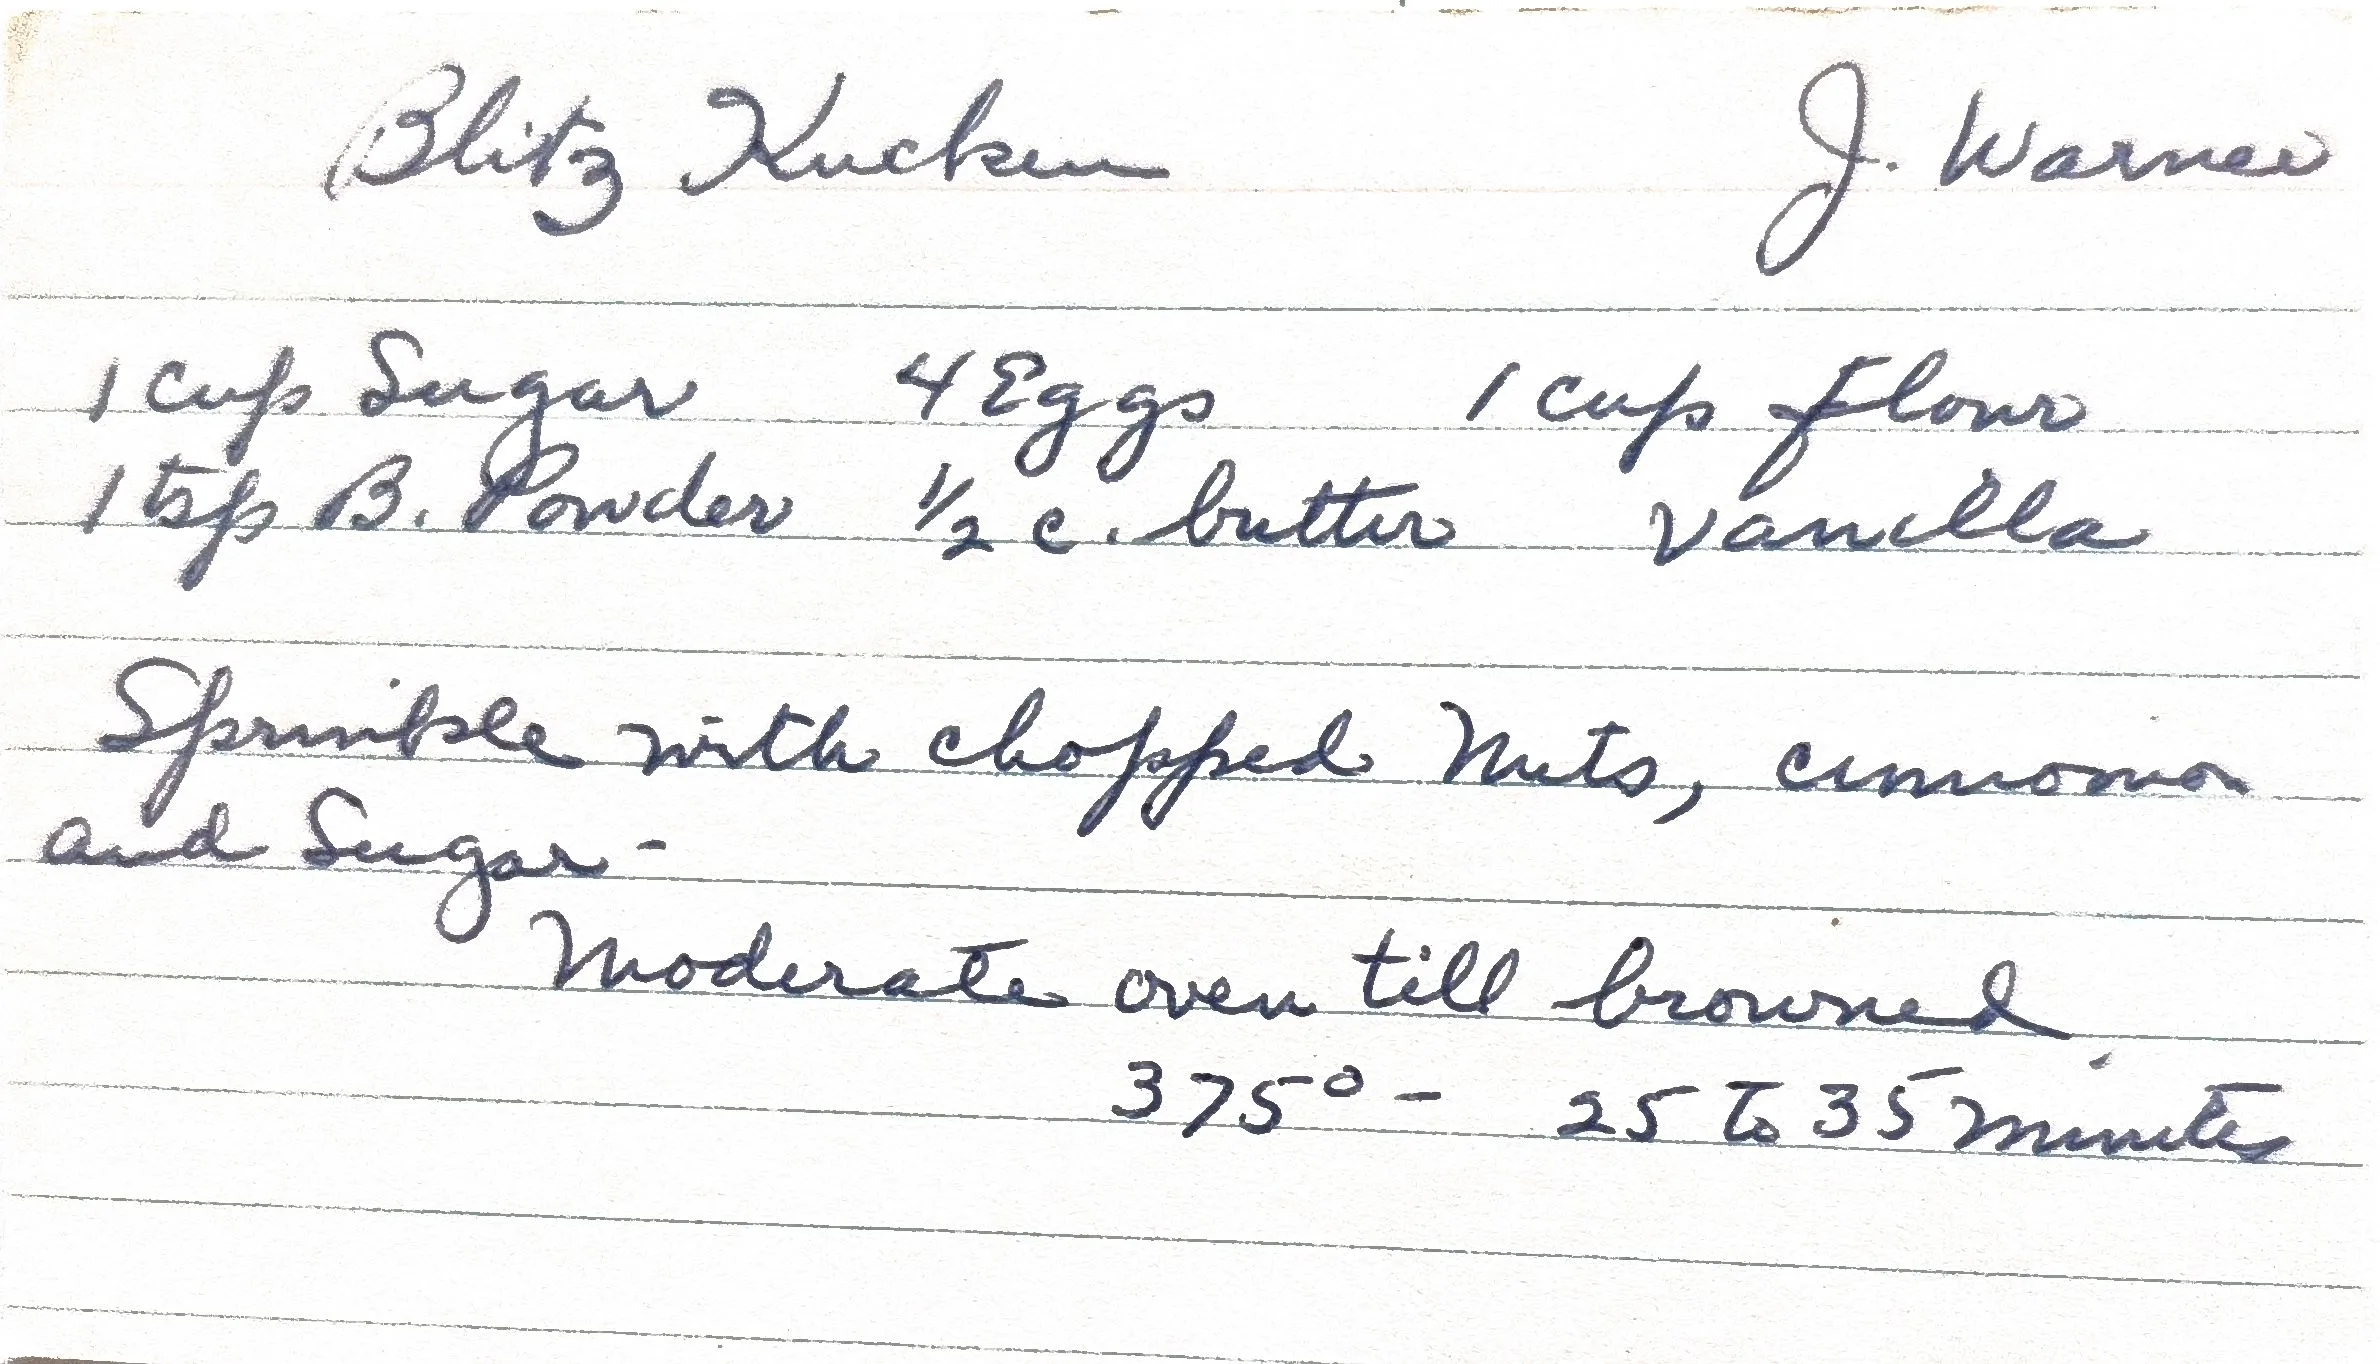 Blitz Kucken J. Warner
1 cup Sugar 4 Eggs 1 cup flour
1 tsp B. Powder 1/2 c. butter vanilla
Sprinkle with chopped Nuts, cinnomon
and Sugar -
Moderate oven till browned
375° - 25 to 35 minutes